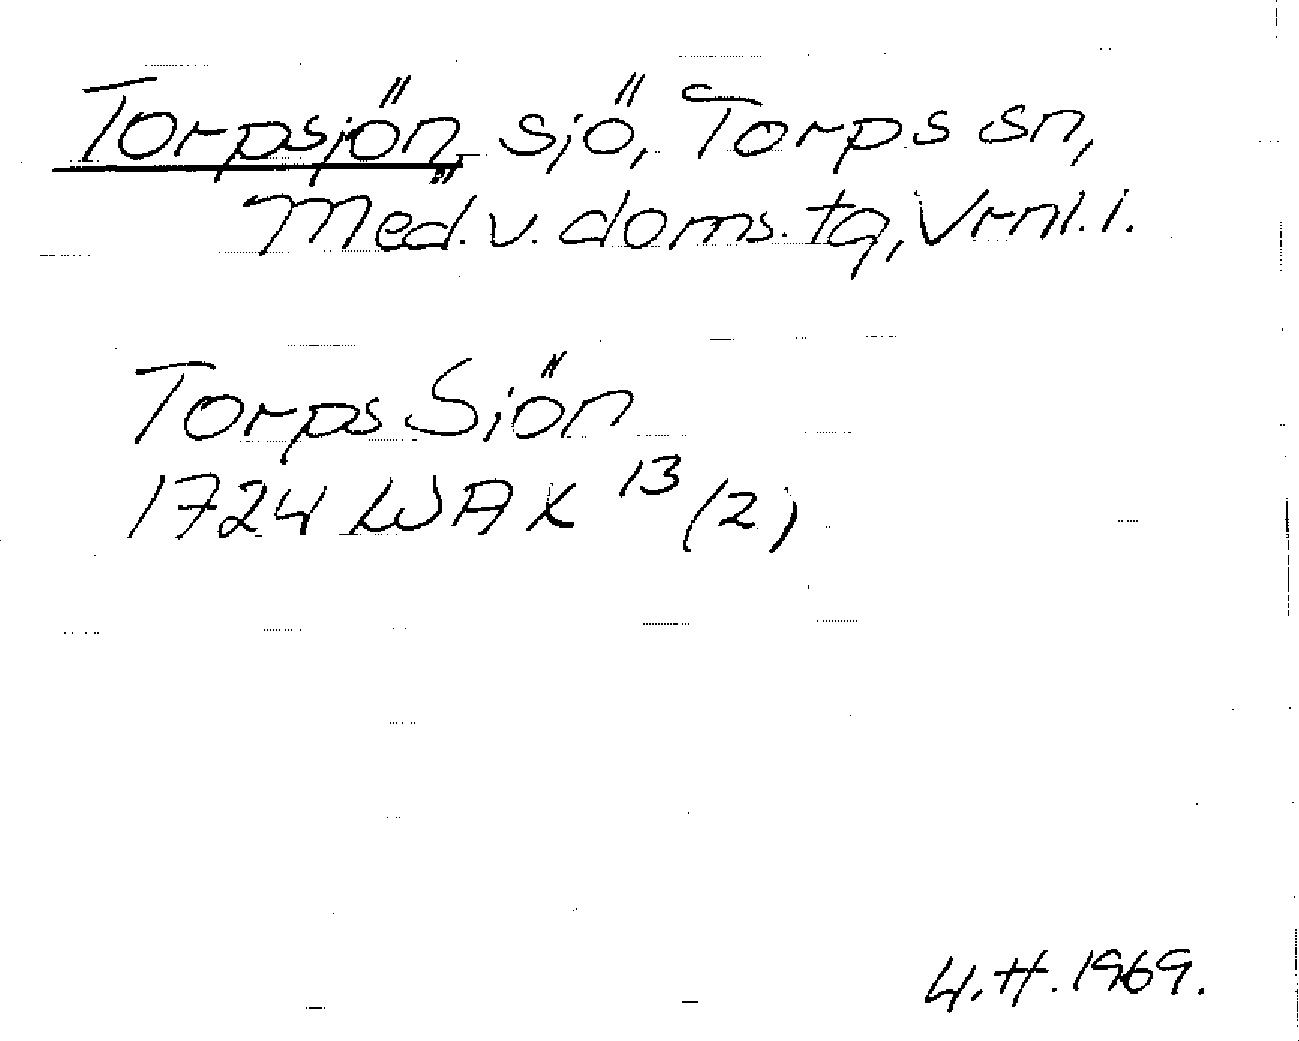 Torpsjön, sjö, Torps sn,
Med. v. doms. tg, Vrnl. l.
Torps Siön
1724 WA X 13 (2)
4. H. 1969.